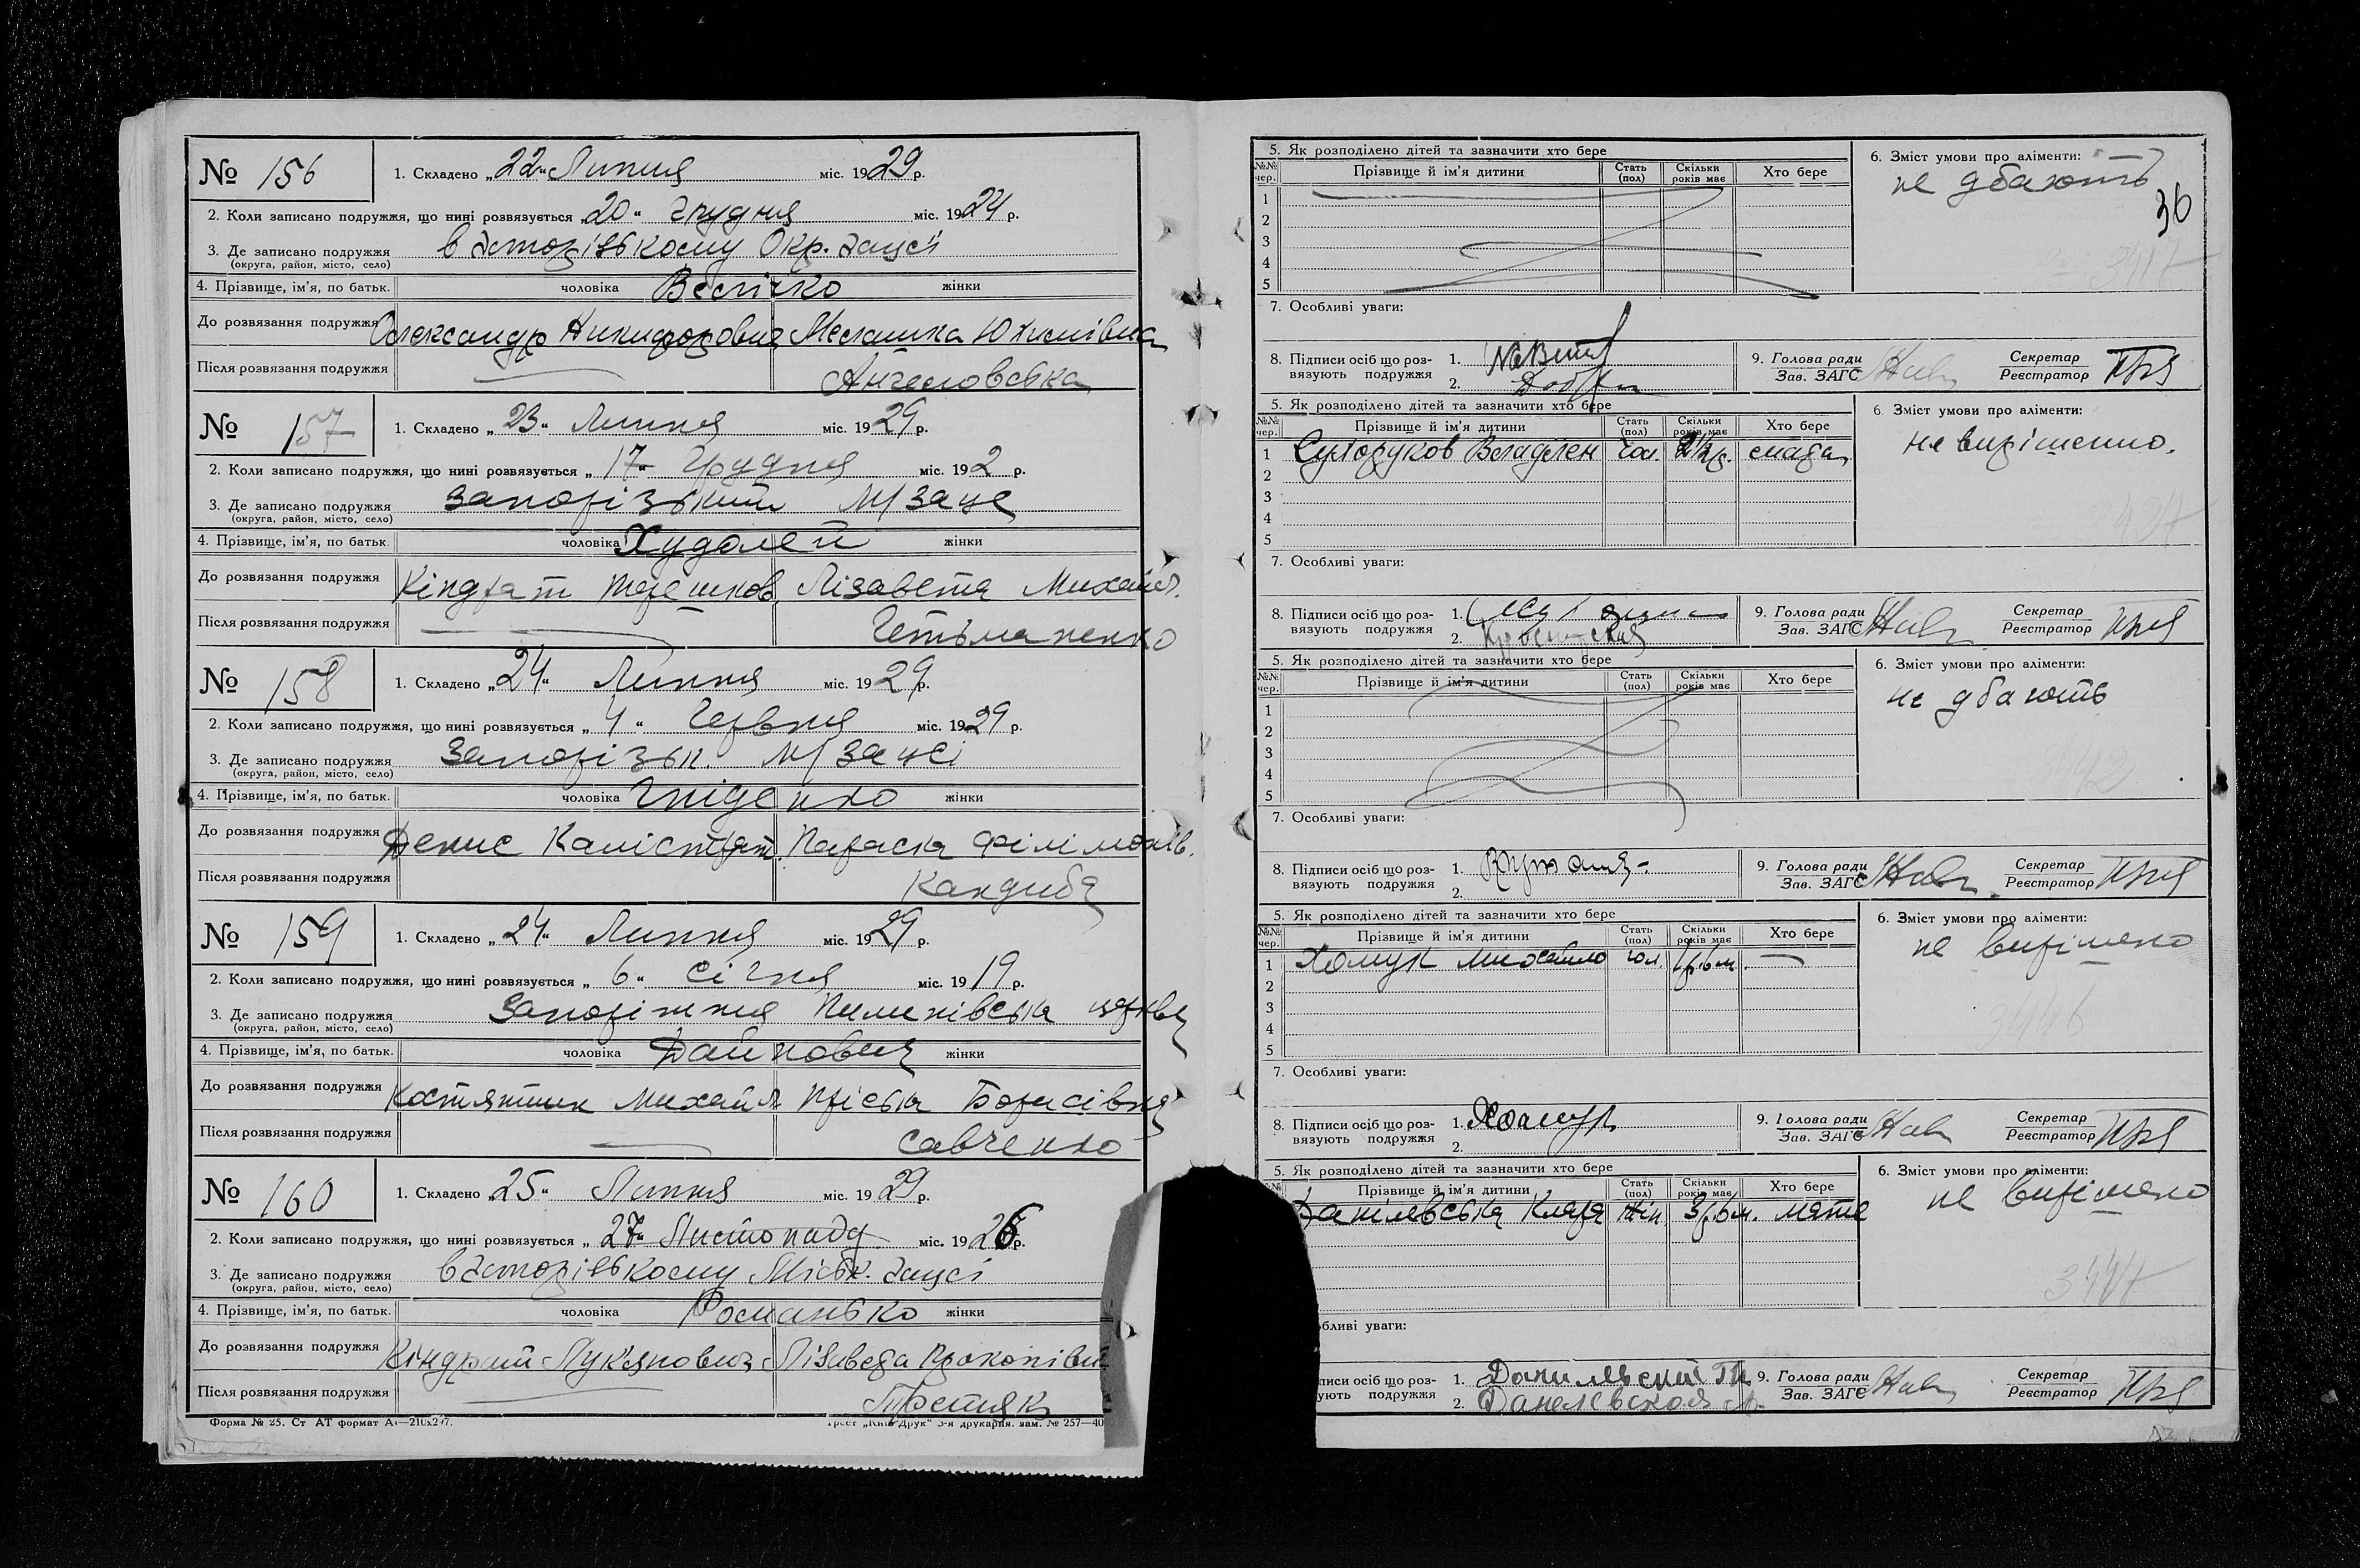 № 156
1. Складено „22“ Липня міс. 1929 р.
2. Коли записано подружжя, що нині розвязується „20“ Грудня міс. 1924 р.
3. Де записано подружжя в Запорізькому Окр. Загсі
(округа, район, місто, село)
4. Прізвище, ім'я, по батьк. чоловіка Велічко жінки
До розвязання подружжя Олександр Никифорович Мелашка Юхимівна
Після розвязання подружжя Ангеловська
№ 157
1. Складено „23“ Липня міс. 1929 р.
2. Коли записано подружжя, що нині розвязується „17“ Грудня міс. 192 р.
3. Де записано подружжя Запорізький М/Загс
(округа, район, місто, село)
4. Прізвище, ім'я, по батьк. чоловіка Худолей жінки
До розвязання подружжя Кіндрат Терешков. Лізавета Михайл.
Після розвязання подружжя Гетьманенко
№ 158
1. Складено „24“ Липня міс. 1929 р.
2. Коли записано подружжя, що нині розвязується „4“ Червня міс. 1929 р.
3. Де записано подружжя Запорізьк. М/Загсі
(округа, район, місто, село)
4. Прізвище, ім'я, по батьк. чоловіка Гніденко жінки
До розвязання подружжя Денис Калістрат. Параска Філімонів.
Після розвязання подружжя Кандиба
№ 159
1. Складено „24“ Липня міс. 1929 р.
2. Коли записано подружжя, що нині розвязується „6“ Січня міс. 1919 р.
3. Де записано подружжя Запоріжжя церква
(округа, район, місто, село)
4. Прізвище, ім'я, по батьк. чоловіка жінки
До розвязання подружжя Костянтин Михайл Пріська Борисівна
Після розвязання подружжя Савченко
№ 160
1. Складено „25“ Липня міс. 1929 р.
2. Коли записано подружжя, що нині розвязується „27“ Листопаду міс. 1926 р.
3. Де записано подружжя в Запорізькому Міськ. Загсі
(округа, район, місто, село)
4. Прізвище, ім'я, по батьк. чоловіка Романько жінки
До розвязання подружжя Кіндрат Лук'янович Лізавета Прокопівн.
Після розвязання подружжя
Форма № 25. Ст АТ формат
Друк“ 3-я друкарня. зам. № 257—40
5. Як розподілено дітей та зазначити хто бере
6. Зміст умови про аліменти:
№№ чер. Прізвище й ім'я дитини Стать (пол) Скільки років має Хто бере
не дбають
36
1
2
3
4
5
7. Особливі уваги:
8. Підписи осіб що розвязують подружжя 1.
2.
9. Голова ради Зав. ЗАГС Секретар Реєстратор
5. Як розподілено дітей та зазначити хто бере
6. Зміст умови про аліменти:
№№ чер. Прізвище й ім'я дитини Стать (пол) Скільки років має Хто бере
не вирішенно.
1 Сухоруков Владлен чол. 2½р.
2
3
4
5
7. Особливі уваги:
8. Підписи осіб що розвязують подружжя 1.
2.
9. Голова ради Зав. ЗАГС Секретар Реєстратор
5. Як розподілено дітей та зазначити хто бере
6. Зміст умови про аліменти:
№№ чер. Прізвище й ім'я дитини Стать (пол) Скільки років має Хто бере
не дбають
1
2
3
4
5
7. Особливі уваги:
8. Підписи осіб що розвязують подружжя 1.
2.
9. Голова ради Зав. ЗАГС Секретар Реєстратор
5. Як розподілено дітей та зазначити хто бере
6. Зміст умови про аліменти:
№№ чер. Прізвище й ім'я дитини Стать (пол) Скільки років має Хто бере
не вирішено
1 Хомук Михайло чол. 1р.6м.
2
3
4
5
3446
7. Особливі уваги:
8. Підписи осіб що розвязують подружжя 1. Хомук
2.
9. Голова ради Зав. ЗАГС Секретар Реєстратор
5. Як розподілено дітей та зазначити хто бере
6. Зміст умови про аліменти:
Прізвище й ім'я дитини Стать (пол) Скільки років має Хто бере
не вирішено
Данілевська Клара жін. 3р.6м. мати
3447
бливі уваги:
писи осіб що роз-
ують подружжя 1. Данилевский
2. Данелевская
9. Голова ради Зав. ЗАГС Секретар Реєстратор